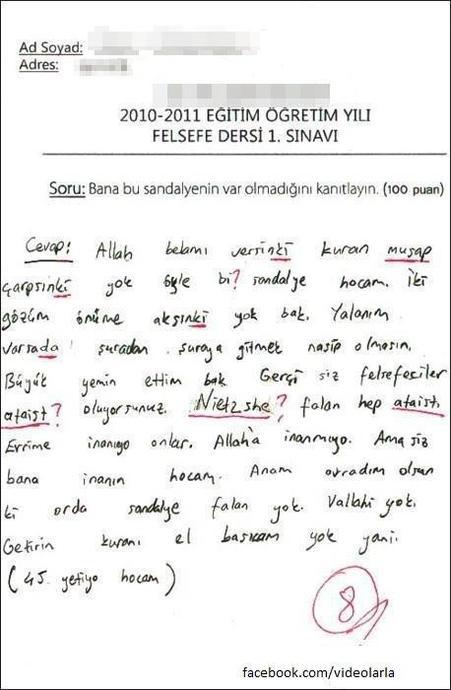 Ad Soyad:
Adres:
2010-2011 EĞİTİM ÖĞRETİM YILI
FELSEFE DERSİ 1. SINAVI
Soru: Bana bu sandalyenin var olmadığını kanıtlayın. (100 puan)
Cevap: Allah belamı versinki kuran muşap
çarpsınki yok öyle bi? sandalye hocam. İki
gözüm önüme aksınki yok bak. Yalanım
varsada şuradan şuraya gitmek nasip olmasın.
Büyük yemin ettim bak Gerçi siz felsefeciler
ataist? oluyorsunuz. Nietzshe? falan hep ataist.
Evrime inanıyo onlar. Allah'a inanmıyo. Ama siz
bana inanın hocam. Anam avradım olsun
ki orda sandalye falan yok. Vallahi yok.
Getirin kuranı el basıcam yok yani.
(45 yetiyo hocam)
8
facebook.com/videolarla